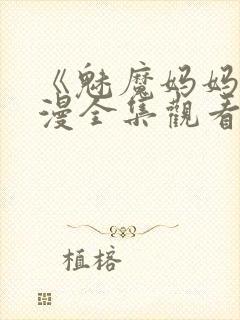 《魅魔妈妈
漫全集觀看
植榕